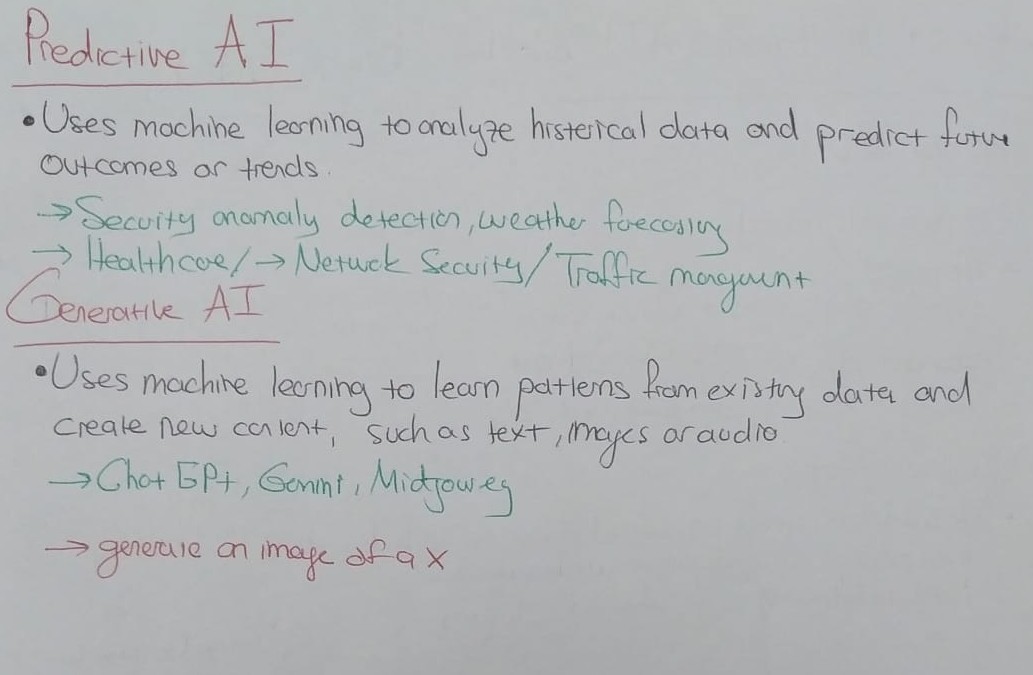 Predictive AI
• Uses machine learning to analyze histerical data and predict future
outcomes or trends.
→ Security anomaly detection, weather forecasing
→ Healthcare/→ Network Security/ Traffic mangment
Generative AI
• Uses machine learning to learn patterns from existing data and
create new content, such as text, images or audio
→ Chat GPt, Gemini, Midjourney
→ generate an image of a x